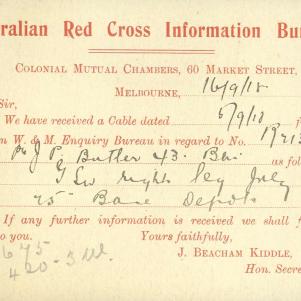 ralian Red Cross Information Bu
COLONIAL MUTUAL CHAMBERS, 60 MARKET STREET,
MELBOURNE, 16/9/18
Sir,
We have received a Cable dated 5/9/18
n W. & M. Enquiry Bureau in regard to No. 1913
J P Butler 43 Bn
as fol
G S W right leg July
25 Base Depot
If any further information is received we shall f
to you. Yours faithfully,
J. BEACHAM KIDDLE,
Hon. Secre
675
420-3 M